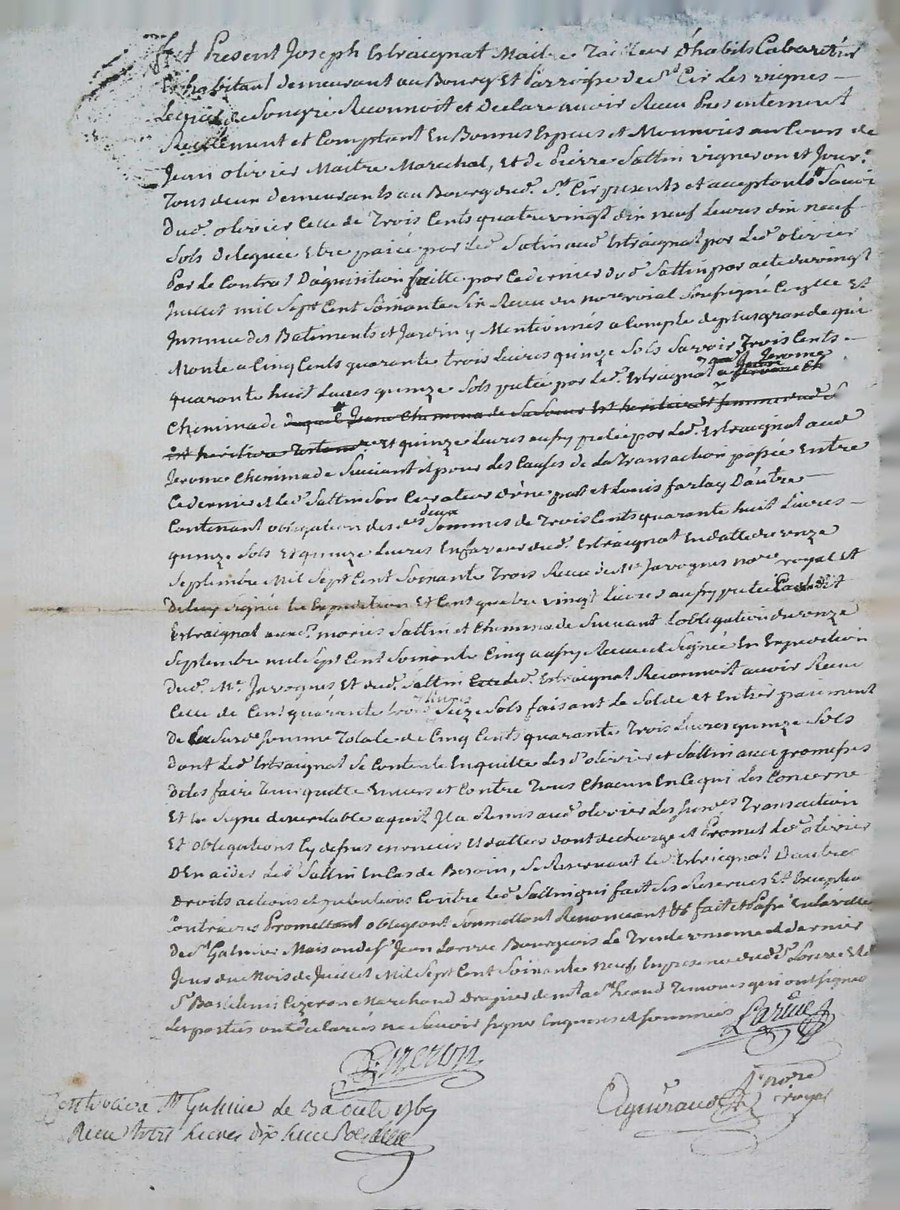 fut Present Joseph Estraignat Maitre Tailleur D'habits Cabartier
habitant demeurant au Bourg Et Parroisse de St Cir Les vignes
Lequel de Son gré Reconnoit et Declare avoir Receu Presentement
Reellement et Comptant En Bonnes Especes et Monnoies au Cours de
Jean olivier Maitre Marechal, et de Pierre Sattin vigneron et Jour.
Tous deux demeurants au Bourg dud. St Cir presents et acceptants Savoir
Dud. olivier Celle de Trois Cents quatre vingt dix neuf Livres dix neuf
Sols deleguée Etre paiée par Led. Satin aud. Estraignat par Led. olivier
Par le Contrat D'aquisition faitte par Ce dernier dud. Sattin par acte du vingt
Juillet mil Sept Cent Soixante Six Receu du nore roial Soussigné Cy elle Et
Jusmee des Batiments et Jardin y Mentionnés a Compte de plus grande qui
Monte a Cinq Cents quarante trois Livres quinze Sols Savoir Trois Cents
quarante huit Livres quinze Sols pretée par Led. Estraignat a Jerome
Cheminade
et quinze Livres aussy pretée par Led. Estraignat aud.
Jerome Cheminade Suivant et pour Les Causes de La Transaction passée Entre
Ce dernier et Led. Sattin Son Curateur d'une part et Louis farlay D'autre
Contenant obligation des deux Sommes de Trois Cents quarante huit Livres
quinze Sols Et quinze Livres En faveur dud. Estraignat En datte du onze
Septembre Mil Sept Cent Soixante Trois Receu de Me Javognes nore royal Et
De Luy Signée En Expedition Et Cent quatre vingt Livres aussy pretée Par Ledit
Estraignat auxd. mariés Sattin et Cheminade Suivant L'obligation du onze
Septembre mil Sept Cent Soixante Cinq aussy Receue et Signée En Expedition
Dud. Me Javognes Et dud. Sattin Led. Estraignat Reconnoit avoir Receu
Celle de Cent quarante trois livres Seize Sols faisant Le Solde et Entier paiement
De La Susd. Somme Totale de Cinq Cents quarante Trois Livres quinze Sols
Dont Led. Estraignat Se Contente En quitte Les d. olivier et Sattin avec promesses
De les faire Tenir quitte Envers et Contre Tous Chacun En Ce qui Les Concerne
Et En Signe de veritable aquit Il a Remis aud. olivier Les Susd. Transaction
Et obligations Cy dessus enoncées Et dattées dont decharge et Promet Led. olivier
D'En aider Led. Sattin En Cas de Besoin, Se Reservant Led. Estraignat D'autres
Droits actions et pretentions Contre Led. Sattin qui fait Ses Reserves Et Exceptions
Contraires Promettant obligeant Soumettant Renonceant &c fait et Passé En La ville
De St Galmier Maison de Sr Jean Larue Bourgeois Le Trente unieme et dernier
Jour du Mois de Juillet Mil Sept Cent Soixante Neuf, En presence dud. Sr Larue Et de
Sr Barthelemi Ezeron Marchand drapier Temoins qui ont Signé
Les parties ont declarées ne Savoir Signer Enquises et Sommées
Larue
Ezeron
nore royal
Controllé a St Galmier Le 3 aoust 1769
Receu trois Livres dix huit Sols